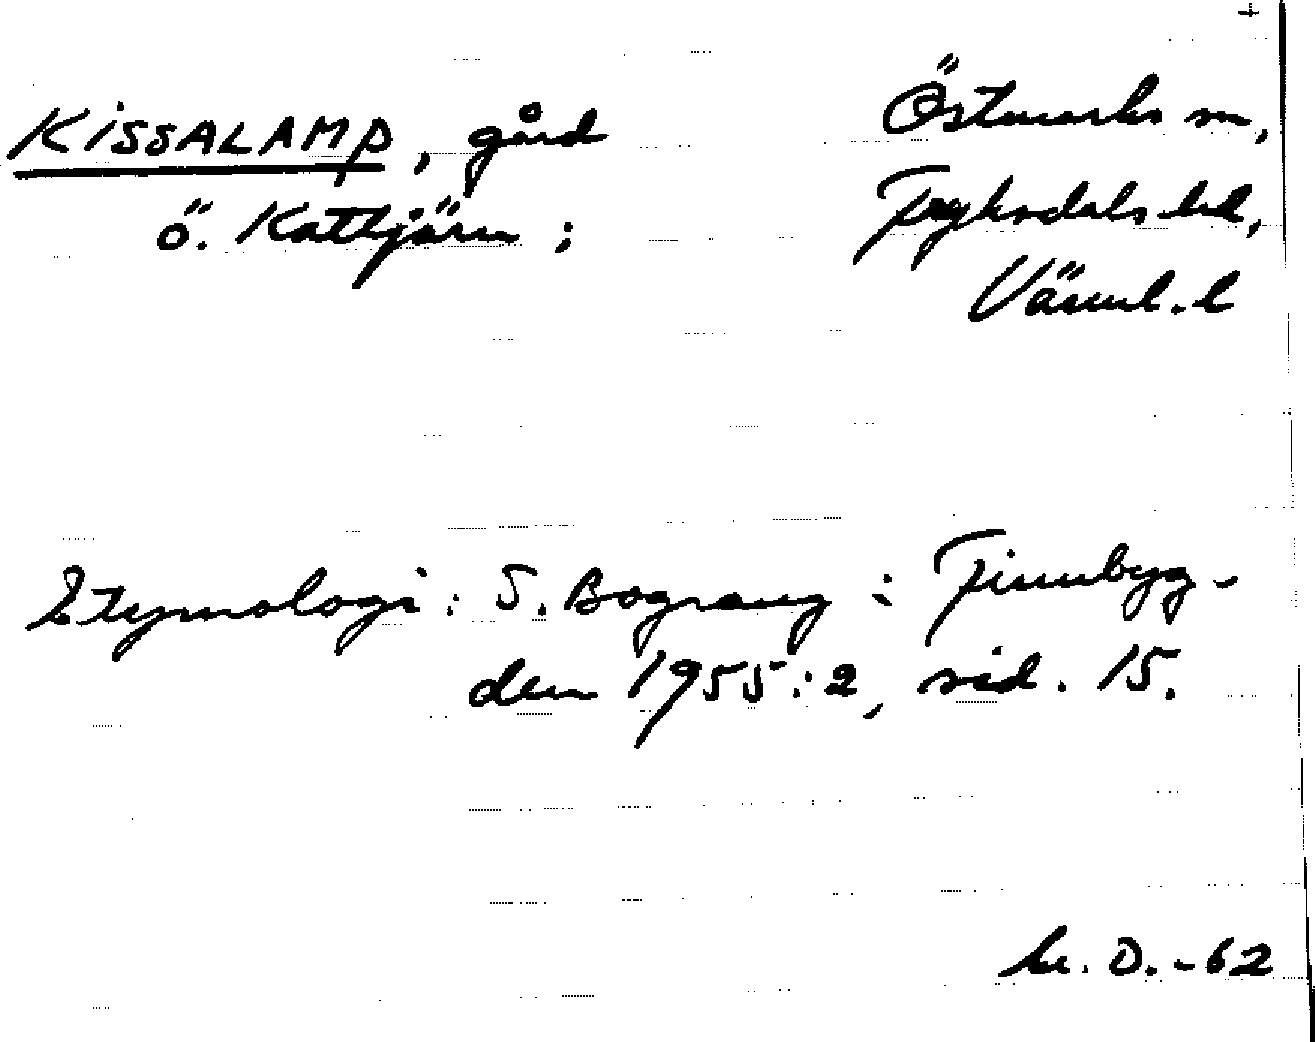 KISSALAMP, gård
ö. Kattjärn;
Östmarks sn,
Fryksdals hd,
Värml. l
Etymologi: S. Bograng: Finnbyg-
den 1955:2, sid. 15.
O. -62